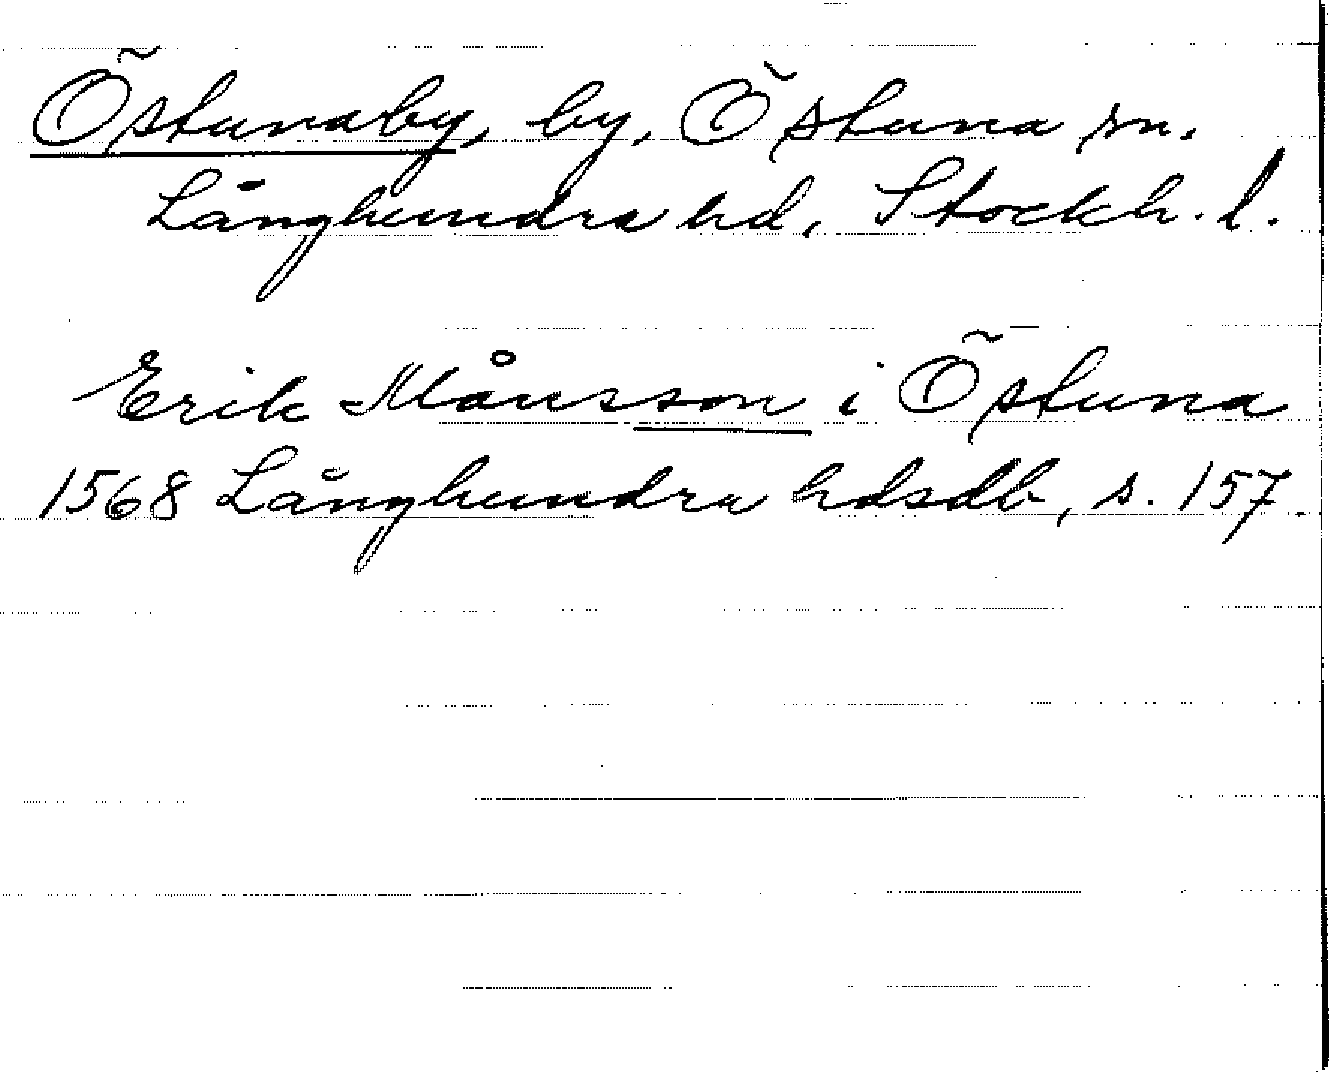 Östunaby, by, Östuna sn.
Långhundra hd, Stockh. l.
Erik Månsson i Östuna
1568 Långhundra hdsdb, s. 157.